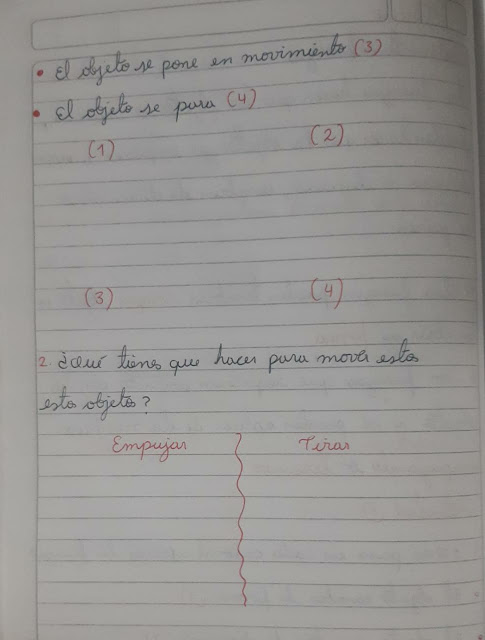 • El objeto se pone en movimiento (3)
• El objeto se para (4)
(1) (2)
(3) (4)
2. ¿Qué tienes que hacer para mover estos
esto objetos?
Empujar Tirar